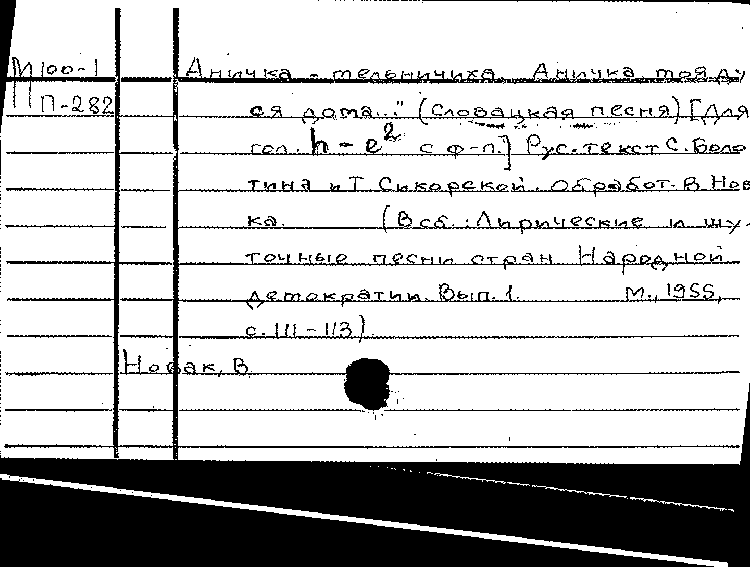 М 100-1
П-282
Аничка - мельничиха. Аничка моя ду
ся дома..." (Словацкая песня) [Для
гол. h - e² с ф-п.] Рус. текст С. Боло
тина и Т. Сикорской. Обработ. В. Нов
ка. (В сб.: Лирические и шу-
точные песни стран Народной
демократии. Вып. 1. М., 1955,
с. 111-113).
Новак, В.